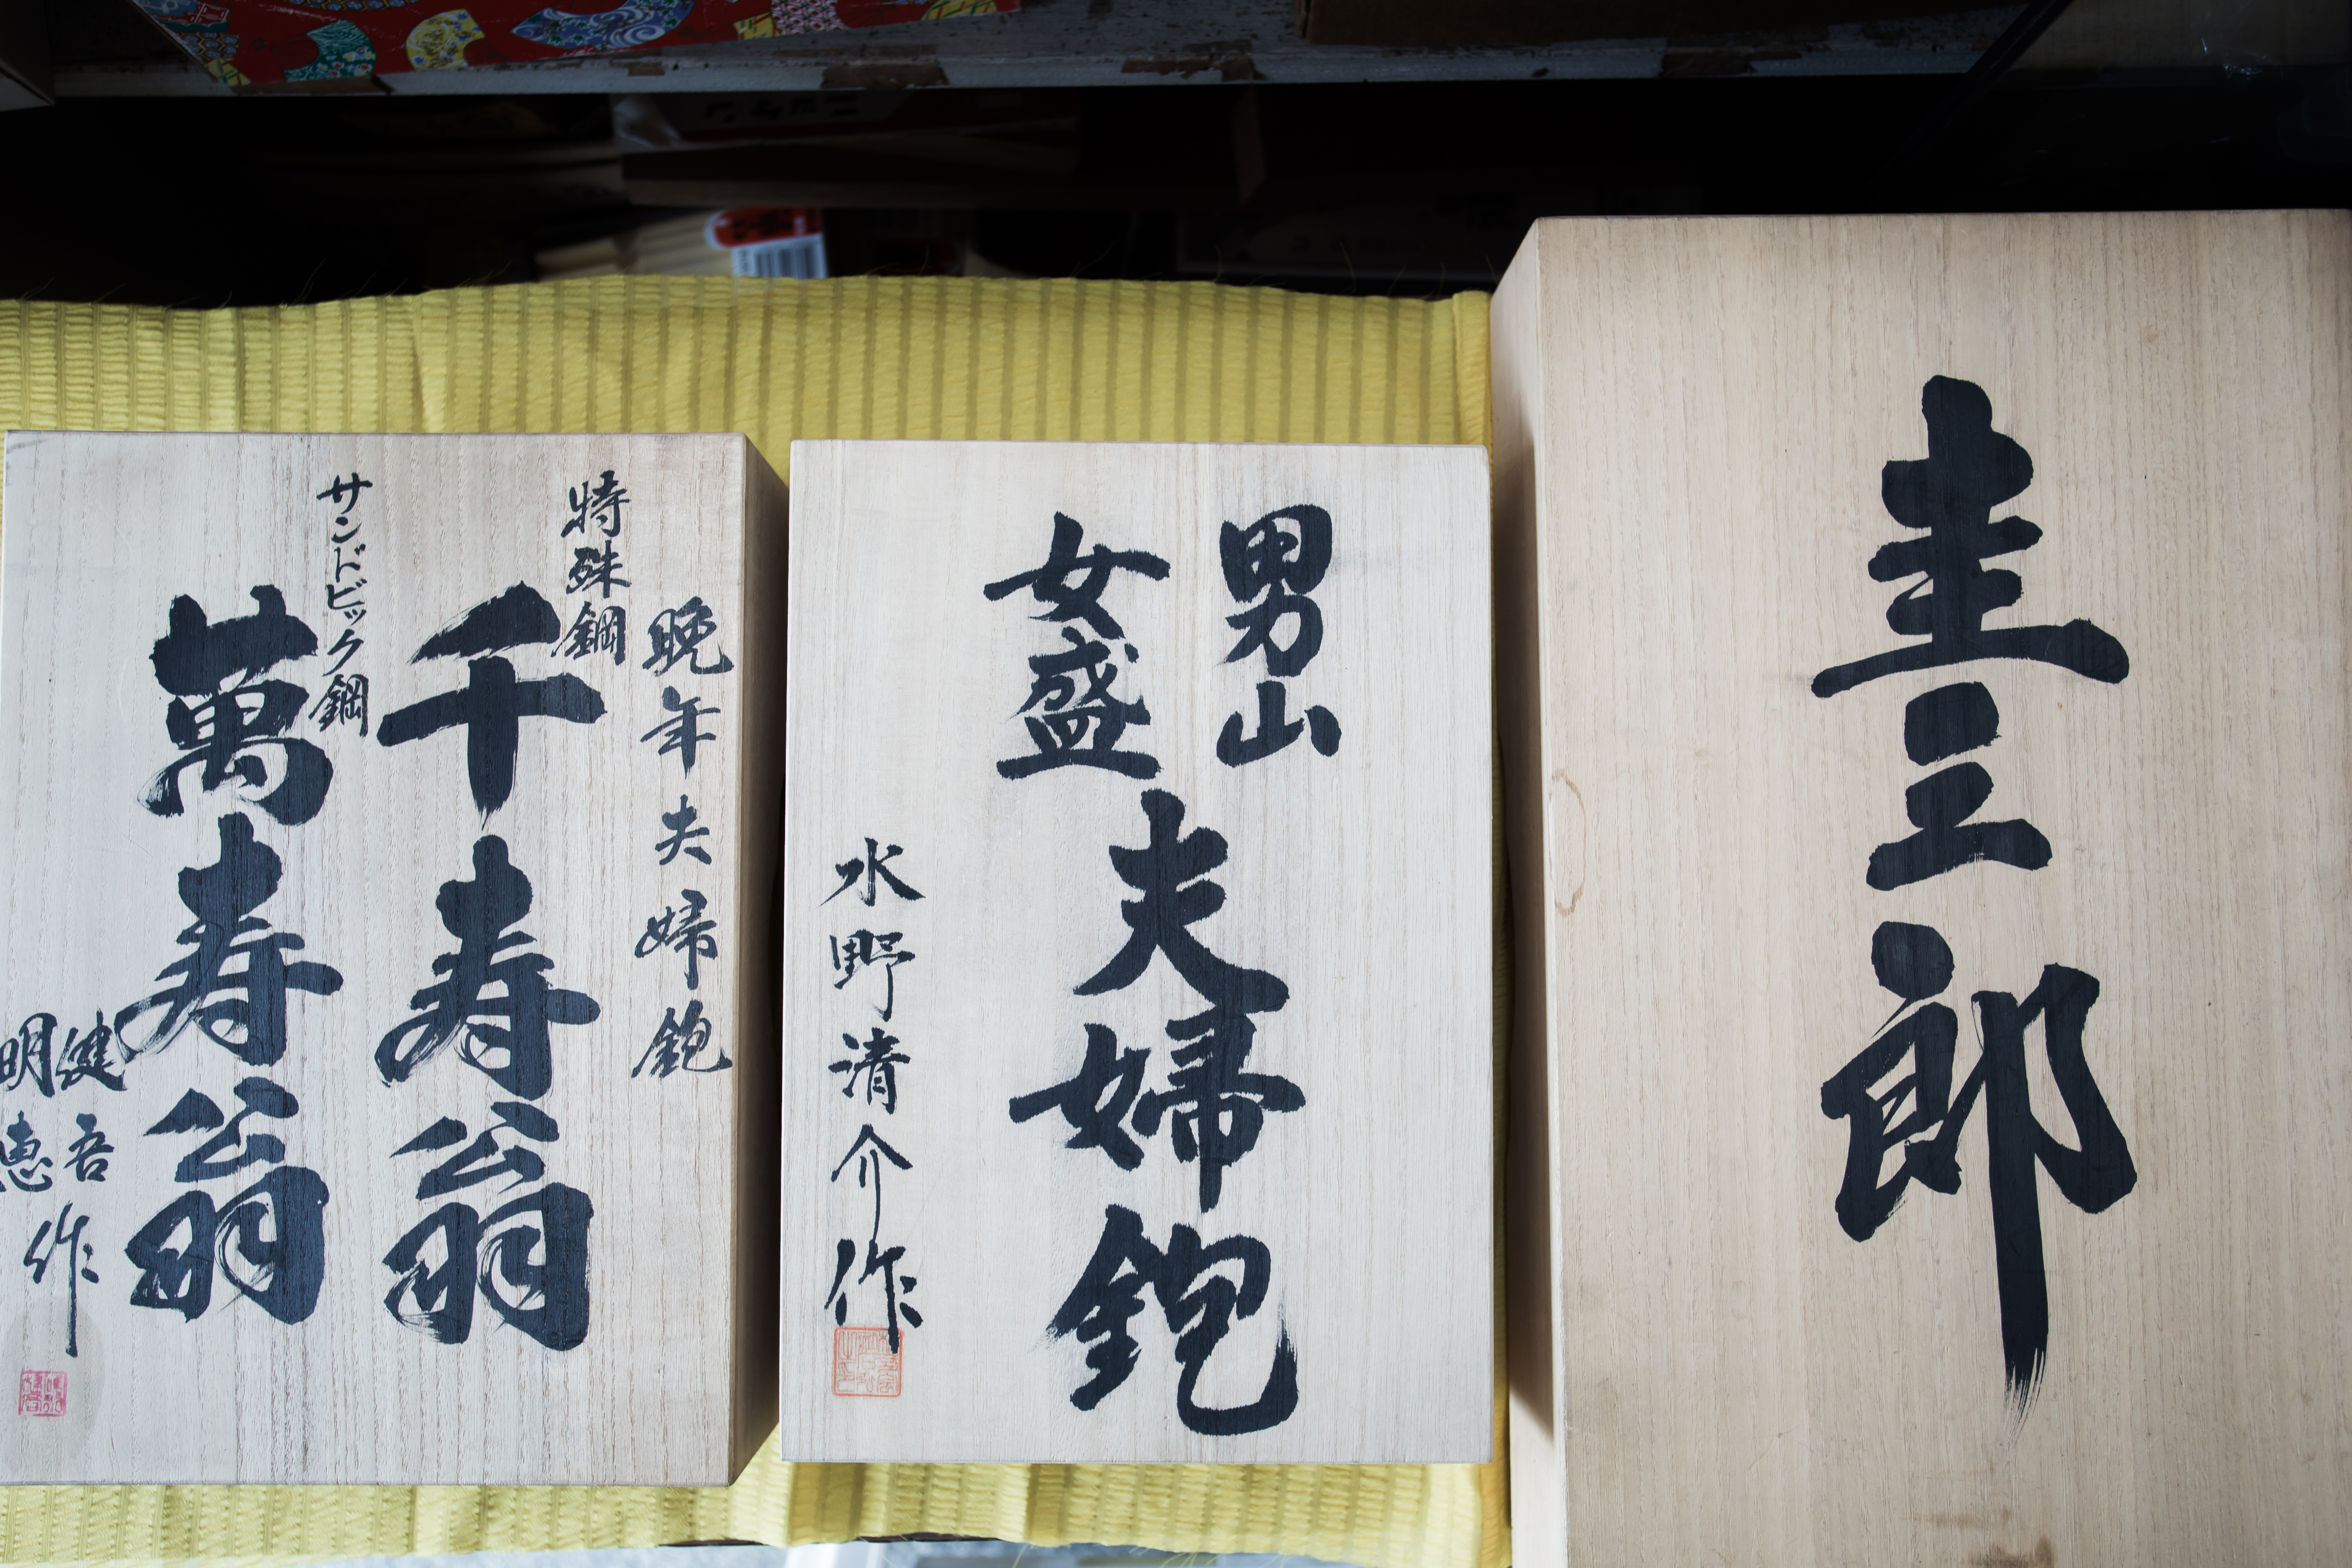 圭三郎
男山
女盛
夫婦鉋
水野清介作
晩年夫婦鉋
特殊鋼
千寿翁
サンドビック鋼
萬寿翁
健吾
明恵
作